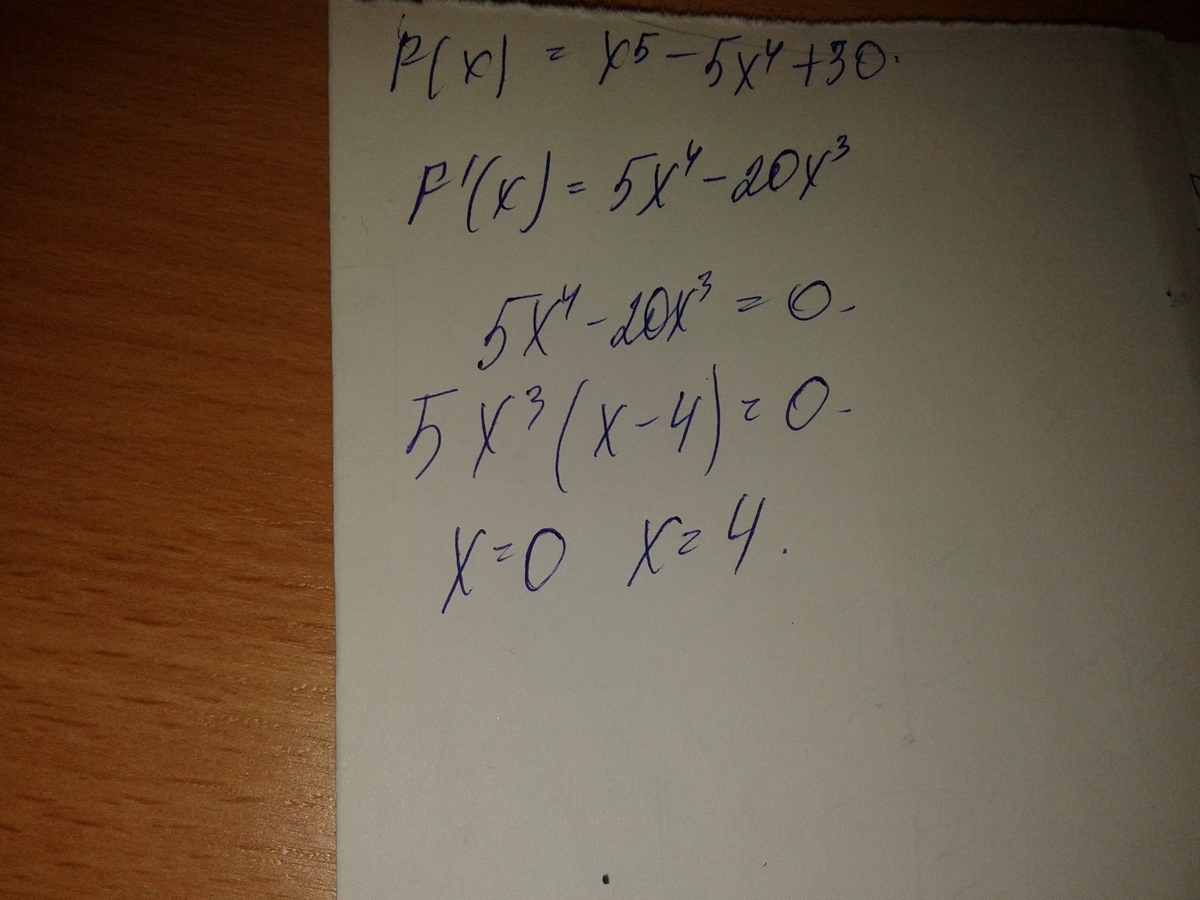 F(x) = x⁵ - 5x⁴ + 30.
F'(x) = 5x⁴ - 20x³
5x⁴ - 20x³ = 0.
5x³(x - 4) = 0.
x = 0 x = 4.